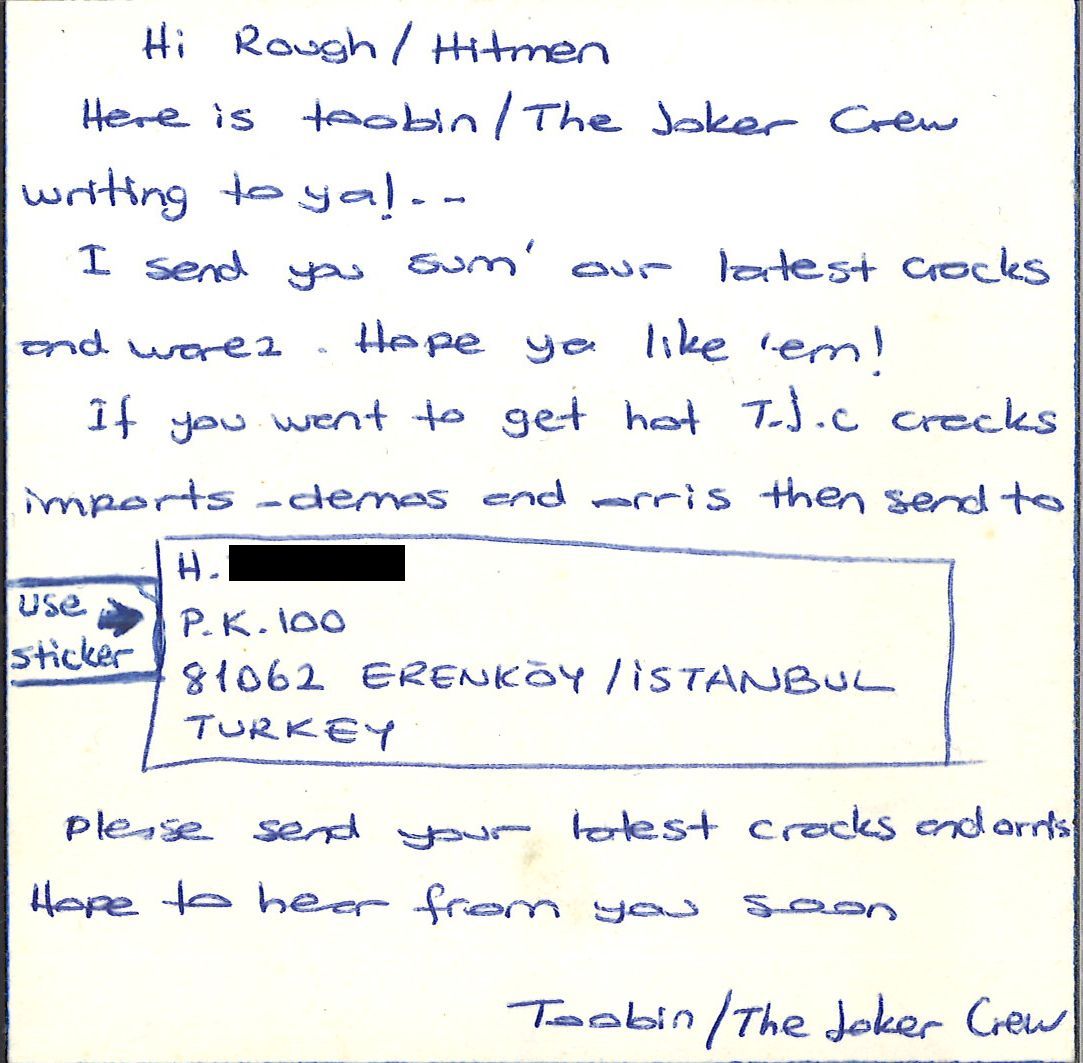 Hi Rough / Hitmen
Here is toobin / The Joker Crew
writing to ya! - -
I send you sum' our latest cracks
and warez. Hope ya like 'em!
If you want to get hot T.J.C cracks
imports - demos and arris then send to
H.
P.K. 100
81062 ERENKÖY / İSTANBUL
TURKEY
use
sticker
Please send your latest cracks and arris
Hope to hear from you soon
Toobin / The Joker Crew